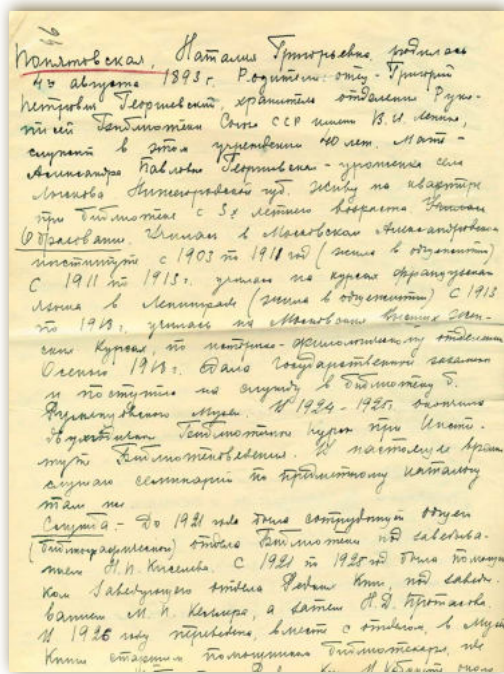 46
Поплавская, Наталия Григорьевна, родилась
августа 1893 г. Родители: отец - Григорий
Петрович Георгиевский, хранитель отделения Руко-
писей Библиотеки Союза ССР имени В.И. Ленина,
служит в этом учреждении 40 лет. Мать -
Александра Павловна Георгиевская - уроженка села
Лыскова Нижегородской губ. Живу на квартире
при библиотеке с 3х летнего возраста.
Образование. Училась в Московском Александровском
институте с 1903 по 1911 год (жила в общежитии)
С 1911 по 1913 г. училась на курсах французского
языка в Ленинграде (жила в общежитии) С 1913
по 1918 г. училась на Московских Высших Жен-
ских Курсах, по историко-филологическому отделению
Осенью 1918 г. сдала государственный экзамен
и поступила на службу в библиотеку б.
Румянцевского Музея. В 1924-1925 г. окончила
Библиотечные курсы при Инсти-
туте Библиотековедения. В настоящее время
слушаю семинарий по предметному каталогу
там же
Служба. - До 1921 года была сотрудницей общего
(библиографического) отдела Библиотеки под заведыва-
нием Н.П. Киселева. С 1921 по 1925 год была помощни-
ком Заведующего отдела Редких Книг, под заведы-
ванием М.И. а затем Н.Д. Протасова.
В 1926 году переведена, вместе с отделом, в Музей
Книги старшим помощником библиотекаря, где